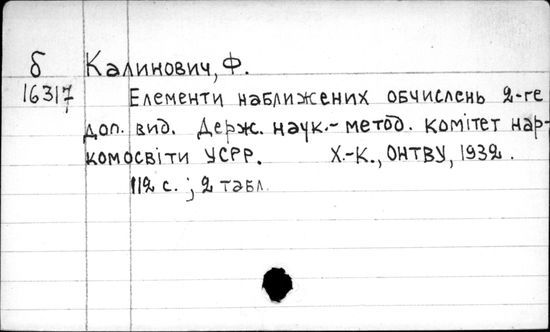 б Калинович, Ф.
16317 Елементи наближених обчислень 2-ге
доп. вид. Держ. наук.-метод. комітет нар-
комосвіти УСРР. Х.-К., ОНТВУ, 1932.
112 с. ; 2 табл.